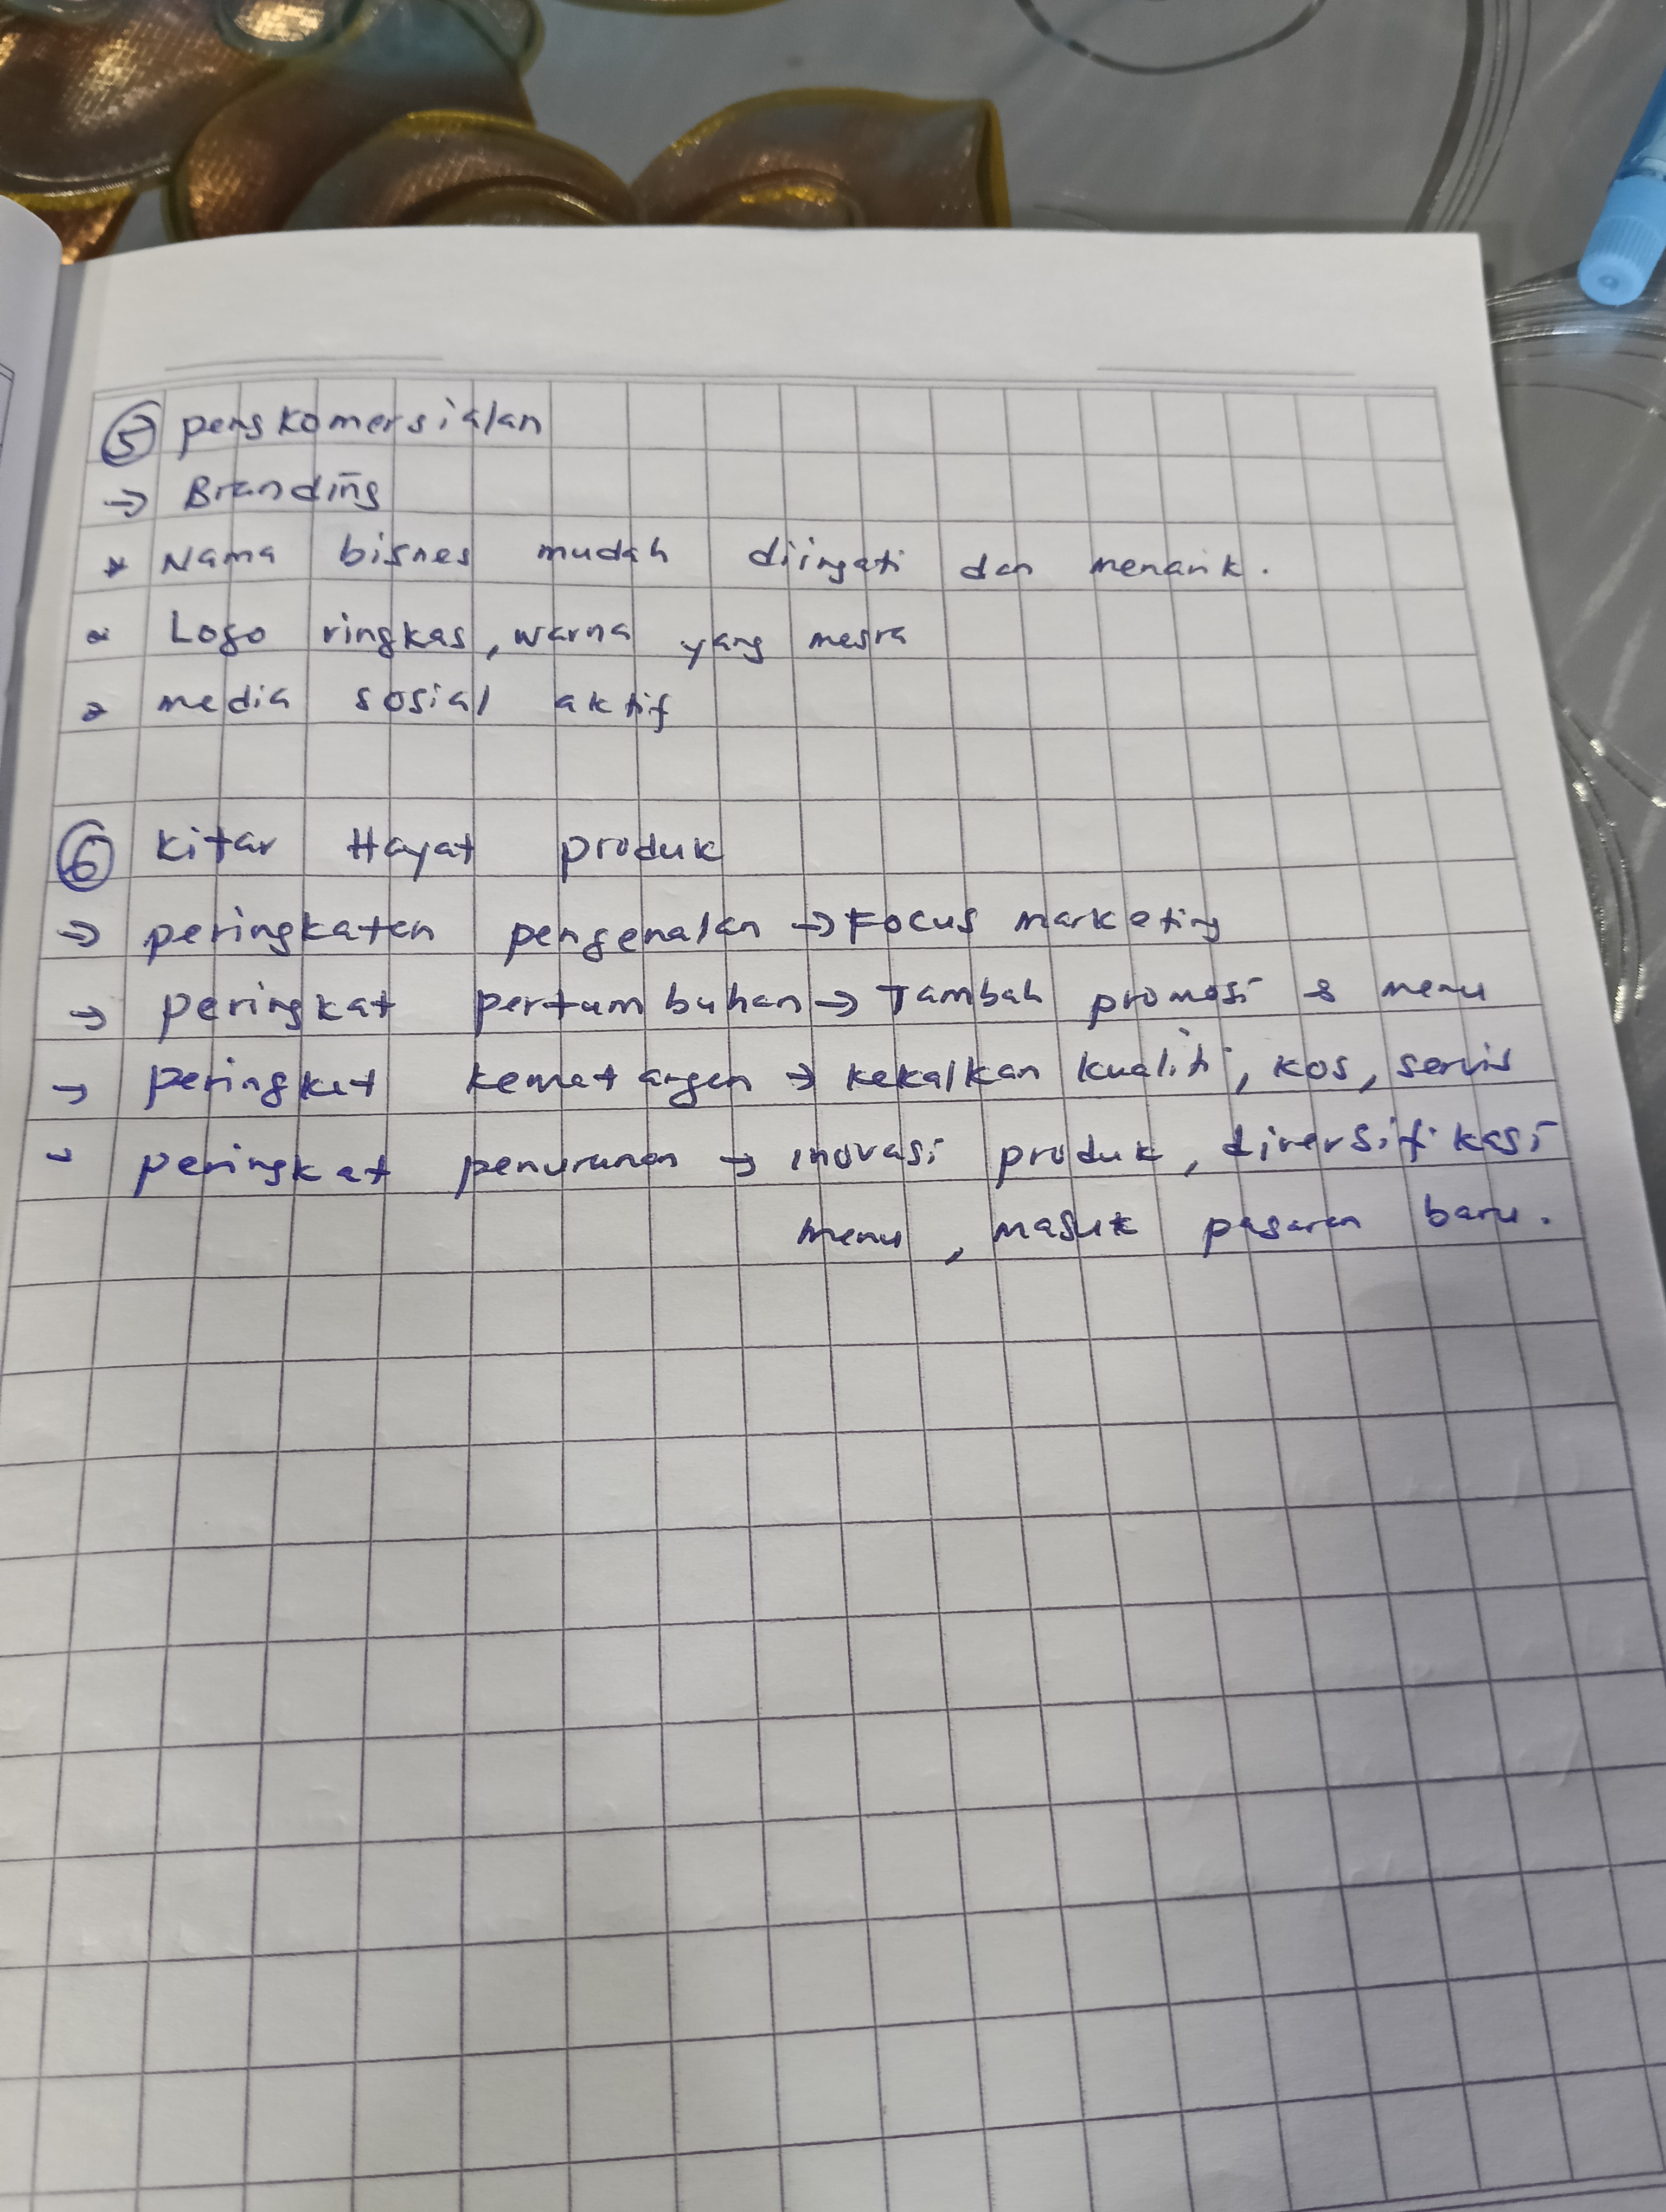 ⑤ pengkomersialan
→ Branding
* Nama bisnes mudah diingati dan menarik.
* Logo ringkas, warna yang mesra
* media sosial aktif
⑥ kitar Hayat produk
→ peringkaten pengenalan → Focus marketing
→ peringkat pertumbuhan → Tambah promosi & menu
→ peringkat kematangan → kekalkan kualiti, kos, servis
→ peringkat penurunan → inovasi produk, diversifikasi
menu, masuk pasaran baru.